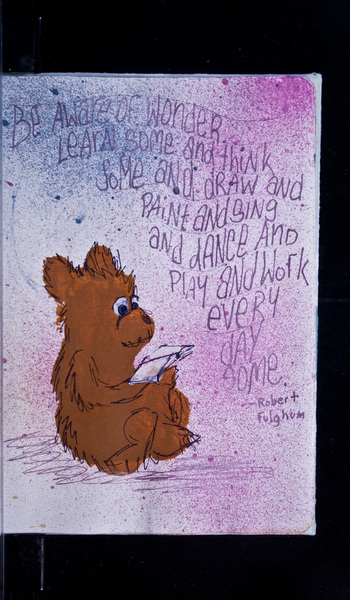 Be AWARe of WONDER.
LEARN SOME and think
SOME and dRAW and
PAiNt and SiNg
and dANCE AND
PLAY and WoRk
eVERY
dAY
SOME.
—Robert
Fulghum